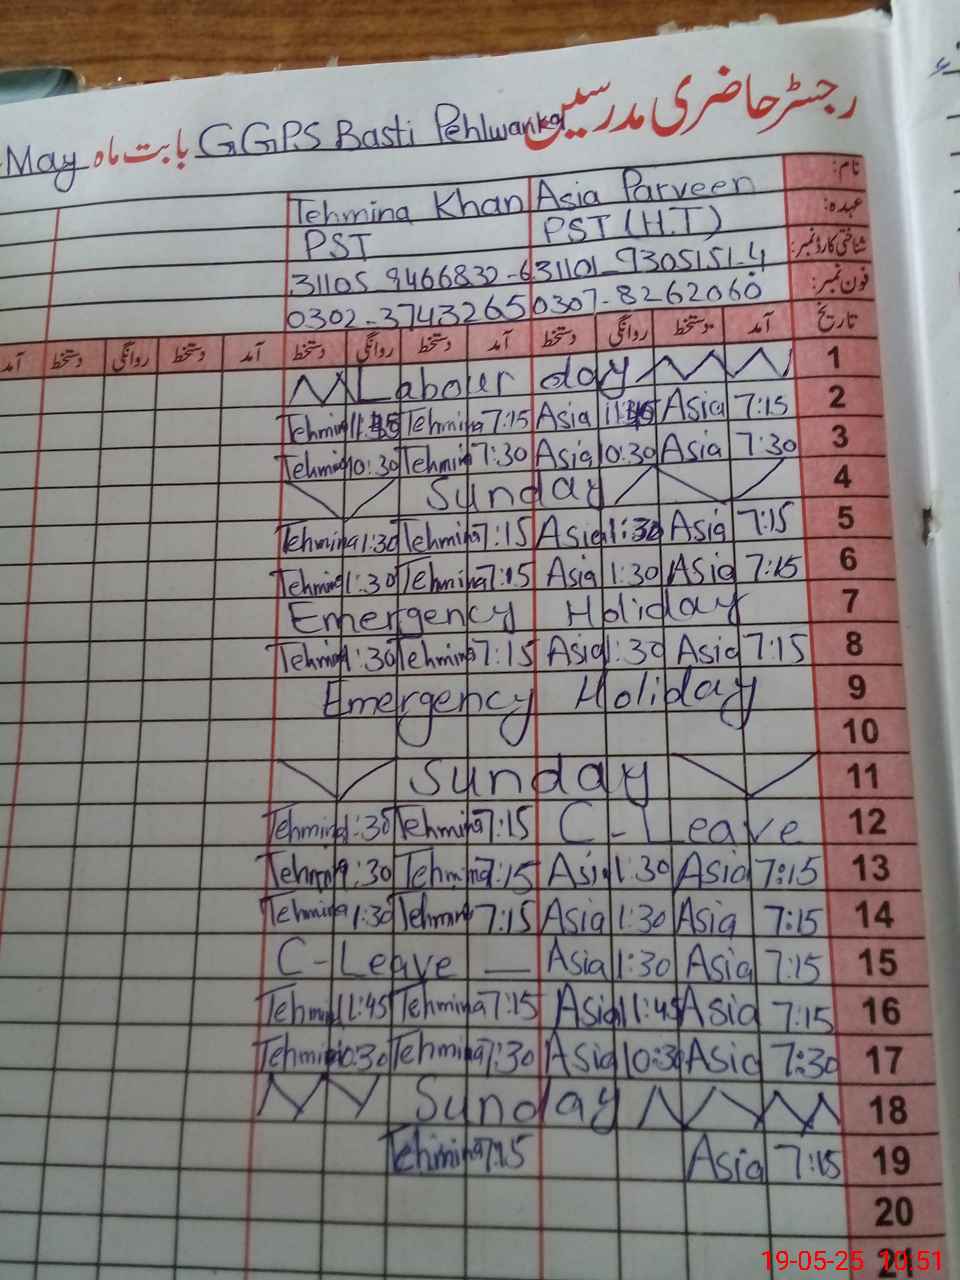 رجسٹر حاضری مدرسین
GGPS Basti Pehlwanka بابت ماہ May
نام: Asia Parveen Tehmina Khan
عہدہ: PST (H.T) PST
شناختی کارڈ نمبر: 31101-9305151-4 31105-9466832-6
فون نمبر: 0307-8262060 0302-3743265
تاریخ آمد دستخط روانگی دستخط آمد دستخط روانگی دستخط آمد دستخط روانگی دستخط آمد
Labour day 1
Tehmina 11:45 Tehmina 7:15 Asia 11:45 Asia 7:15 2
Tehmina 10:30 Tehmina 7:30 Asia 10:30 Asia 7:30 3
Sunday 4
Tehmina 1:30 Tehmina 7:15 Asia 1:30 Asia 7:15 5
Tehmina 1:30 Tehmina 7:15 Asia 1:30 Asia 7:15 6
Emergency Holiday 7
Tehmina 1:30 Tehmina 7:15 Asia 1:30 Asia 7:15 8
Emergency Holiday 9
10
Sunday 11
Tehmina 1:30 Tehmina 7:15 C-Leave 12
Tehmina 1:30 Tehmina 7:15 Asia 1:30 Asia 7:15 13
Tehmina 1:30 Tehmina 7:15 Asia 1:30 Asia 7:15 14
C-Leave — Asia 1:30 Asia 7:15 15
Tehmina 11:45 Tehmina 7:15 Asia 11:45 Asia 7:15 16
Tehmina 10:30 Tehmina 7:30 Asia 10:30 Asia 7:30 17
Sunday 18
Tehmina 7:15 Asia 7:15 19
20
21
19-05-25 10:51